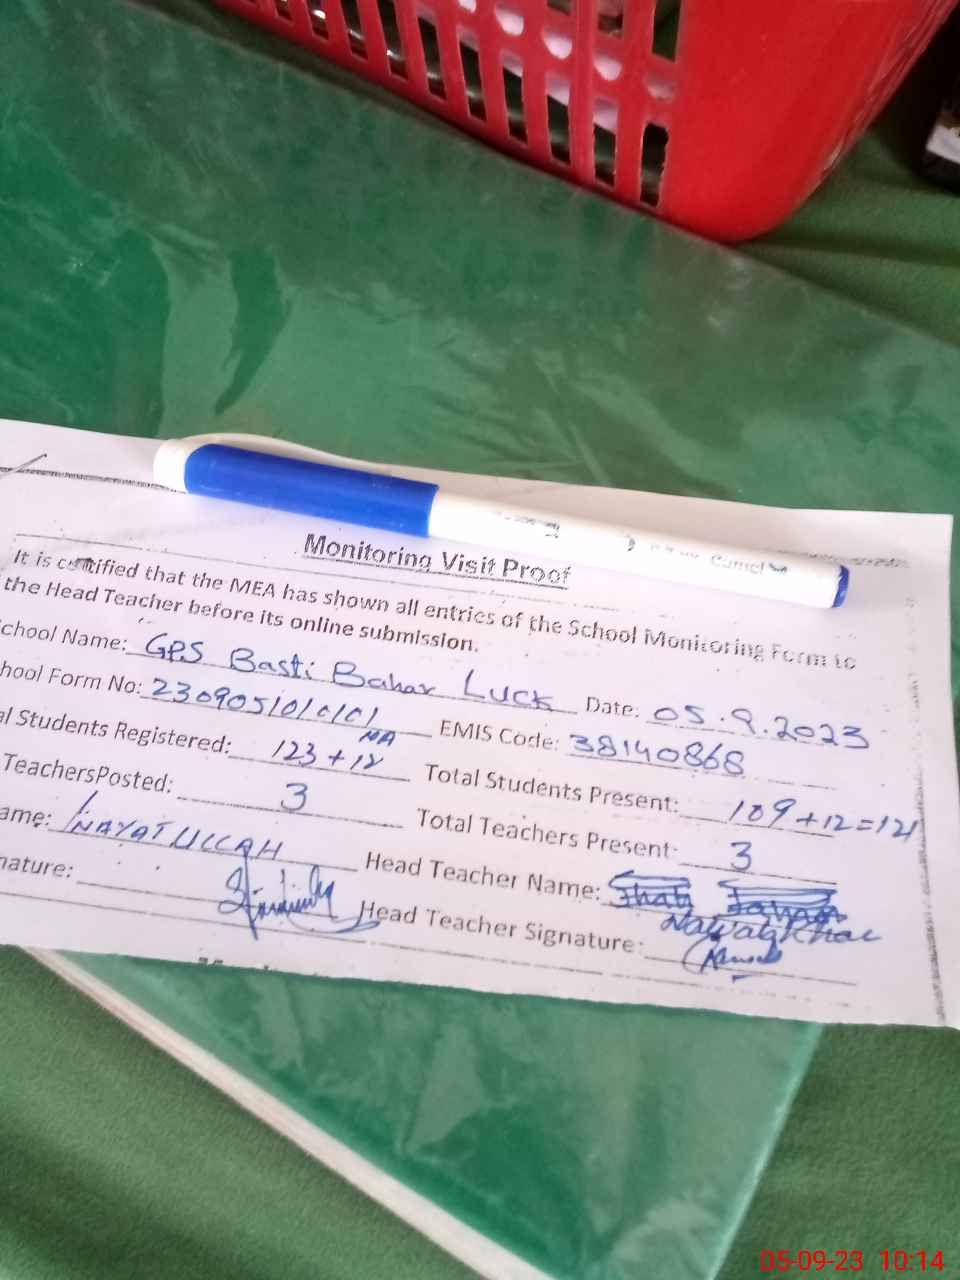 Camel
Monitoring Visit Proof
It is certified that the MEA has shown all entries of the School Monitoring Form to
the Head Teacher before its online submission.
chool Name: GPS Basti Bahar Luck Date: 05.9.2023
hool Form No: 230905 EMIS Code: 38140868
al Students Registered: 123 + 12 NA Total Students Present: 109 + 12 = 121
TeachersPosted: 3 Total Teachers Present: 3
ame: INAYAT ULLAH Head Teacher Name:
nature: Head Teacher Signature:
05-09-23 10:14